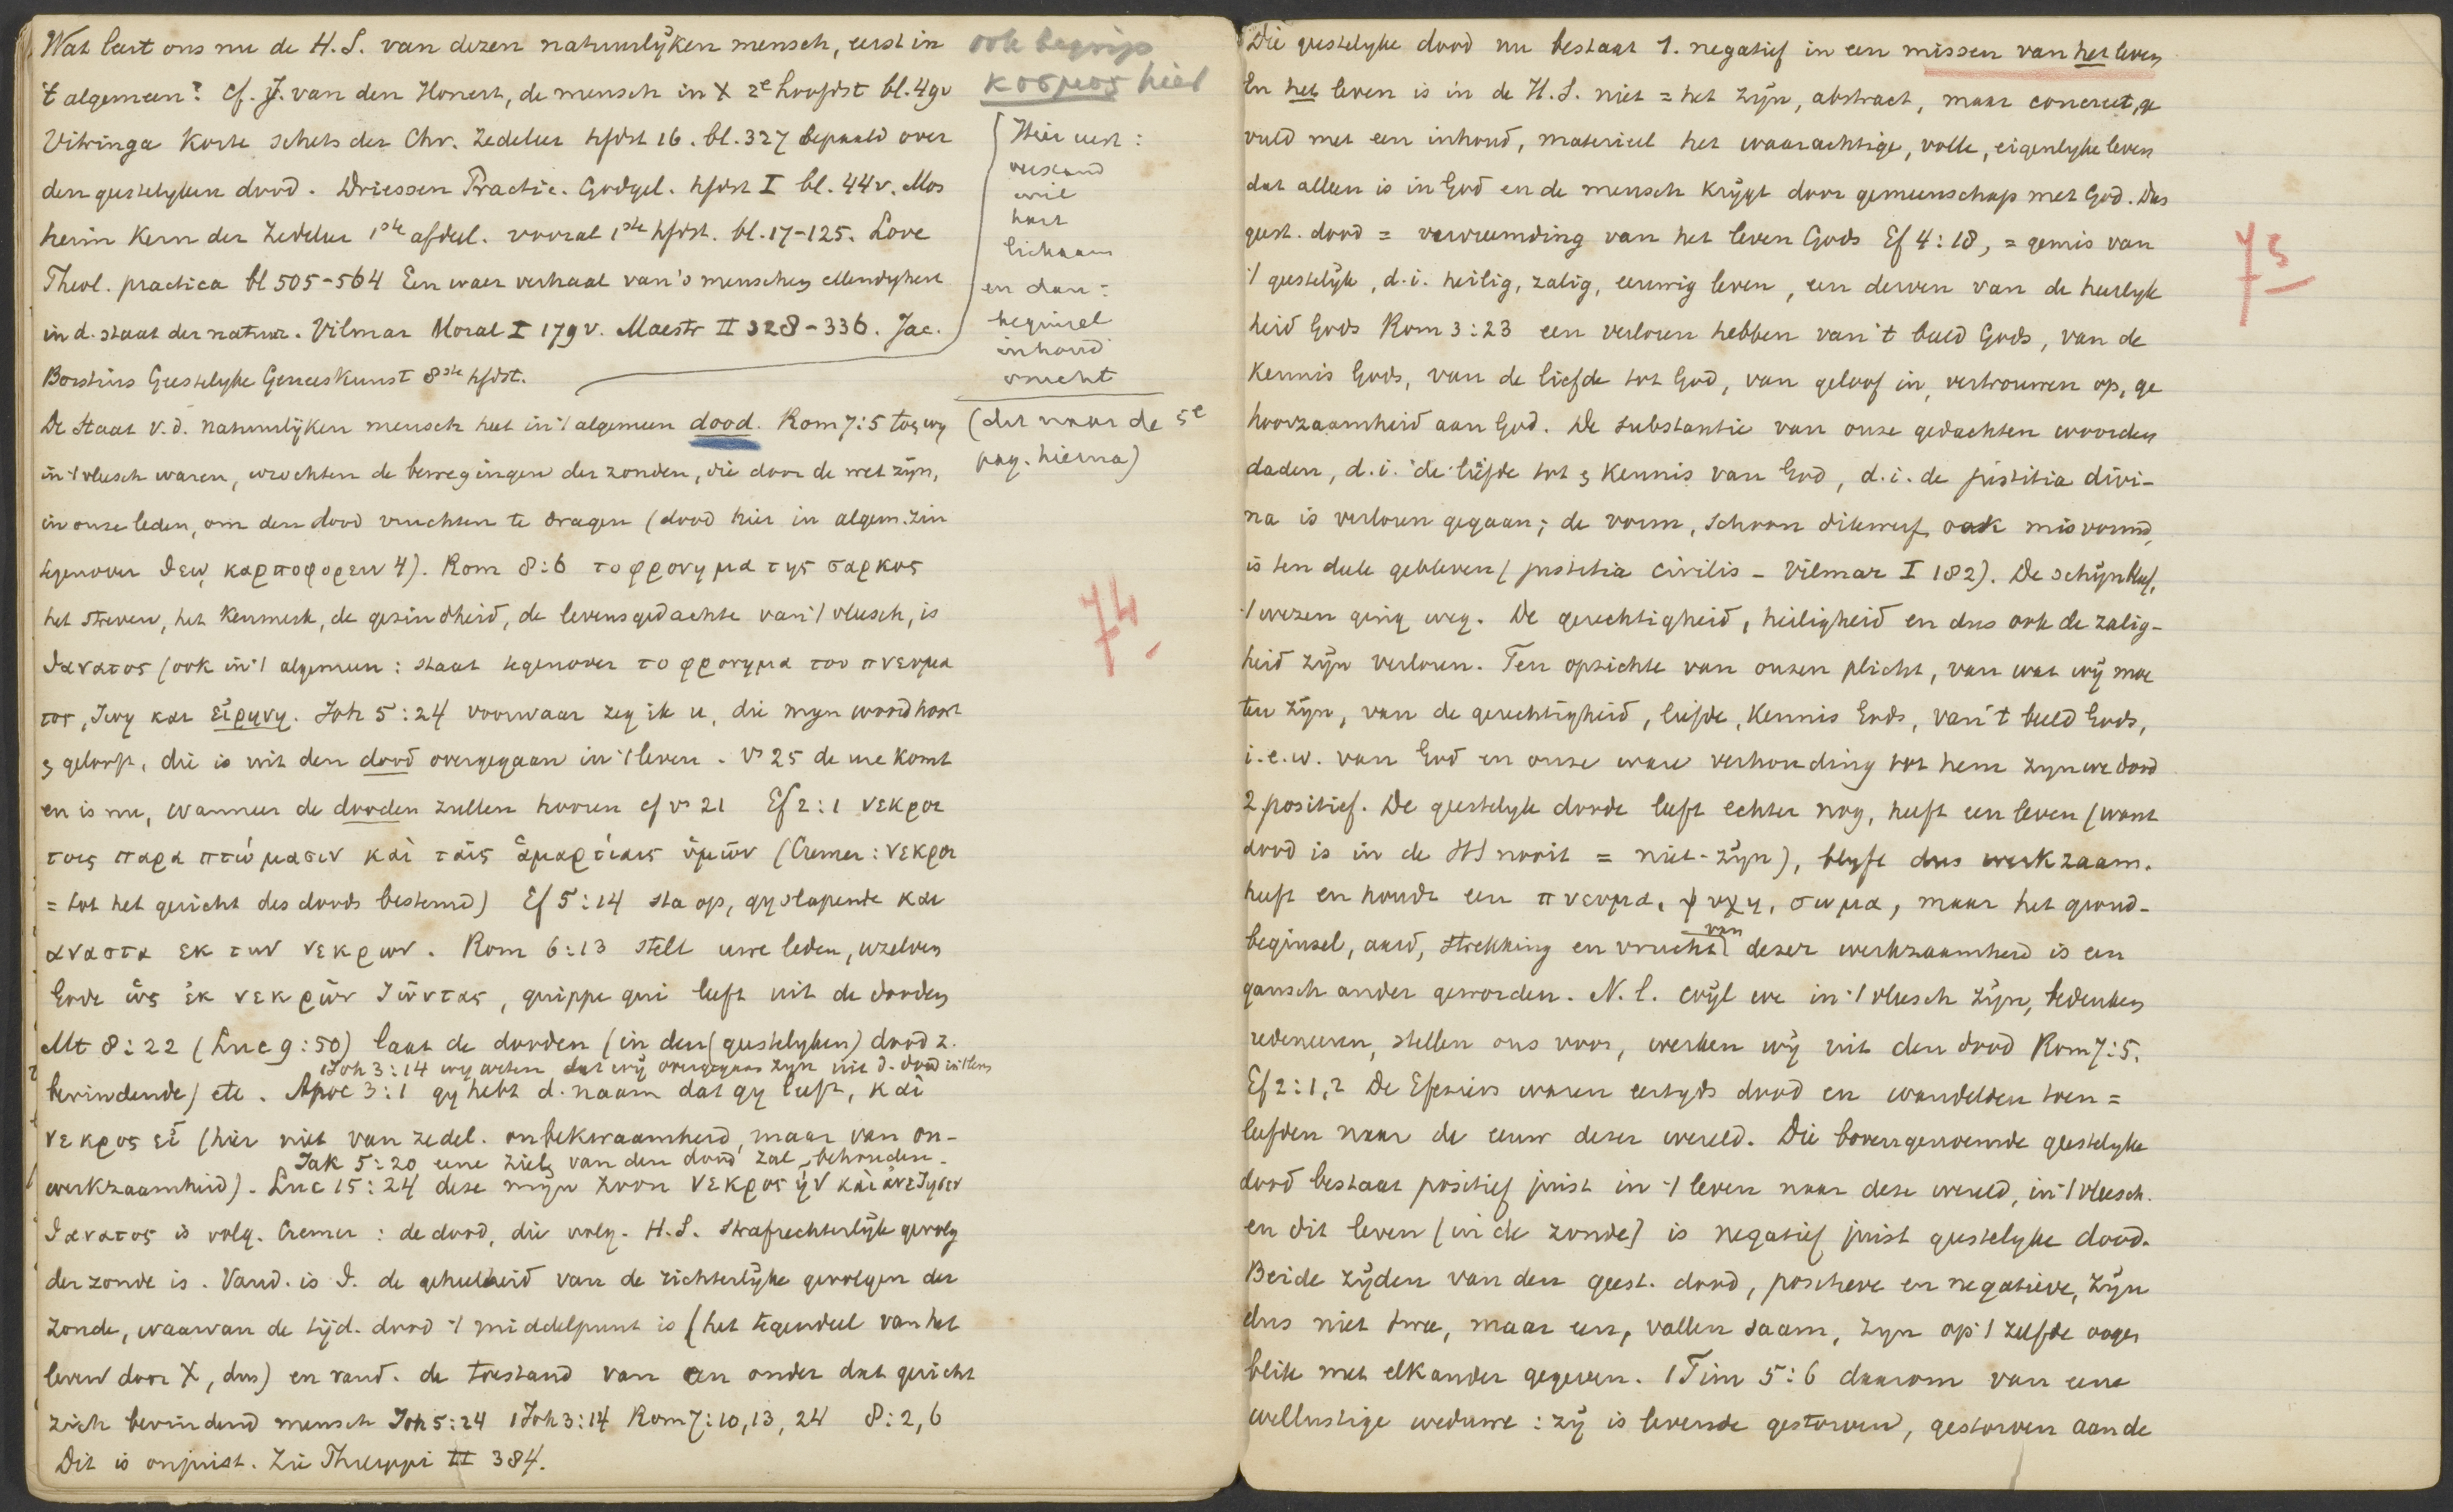 Wat leert ons nu de H.S. van dezen natuurlijken mensch, eerst in
't algemeen? Cf. J. van den Honert, de mensch in X 2e hoofdst bl. 49v
Vitringa Korte schets der Chr. Zedeleer hfdst 16. bl. 327 bepaald over
den geestelyken dood. Driessen Practic. Godgel. hfdst I bl. 44v. Mos
heim Kern der Zedeleer 1ste afdeel. vooral 1ste hfdst. bl. 17-125. Love
Theol. practica bl 505-564 Een waer verhaal van 's menschen ellendigheit
in d. staat der natuur. Vilmar Moral I 179v. Maestr II 328-336. Jac.
Borstius Geestelyke Geneeskunst 8ste hfdst.
De Staat v.d. natuurlijken mensch heet in 't algemeen dood. Rom 7:5 toen wy
in 't vleesch waren, wrochten de bewegingen der zonden, die door de wet zijn,
in onze leden, om den dood vruchten te dragen (dood hier in algem. zin
tegenover θεῳ καρποφορειν 4). Rom 8:6 το φρονημα της σαρκος
het streven, het kenmerk, de gezindheid, de levensgedachte van 't vleesch, is
θανατος (ook in 't algemeen: staat tegenover το φρονημα του πνευμα
τος, ζωη και εἰρηνη. Joh 5:24 voorwaar zeg ik u, die mijn woord hoort
en gelooft, die is uit den dood overgegaan in 't leven. Vs 25 de ure komt
en is nu, wanneer de dooden zullen hooren cf vs 21 Ef 2:1 νεκροι
τοις παραπτώμασιν καὶ ταῖς ἁμαρτίαις ὑμῶν (Cremer: νεκροι
= tot het gericht des doods bestemd) Ef 5:14 sta op, gy slapende και
αναστα εκ των νεκρων. Rom 6:13 stelt uwe leden, uzelven
Gode ὡς ἐκ νεκρῶν ζῶντας, quippe qui leeft uit de dooden
Mt 8:22 (Luc 9:50) laat de dooden (in den (geestelyken) dood z.
1 Joh 3:14 wy weten dat wy overgegaan zyn uit d. dood in 't leven
bevindende) etc. Apoc 3:1 gy hebt d. naam dat gy leeft, καὶ
νεκρος εἶ (hier niet van zedel. onbekwaamheid, maar van on-
Jak 5:20 eene ziel van den dood zal behouden.
werkzaamheid). Luc 15:24 deze mijn zoon νεκρος ἠν καὶ ἀνεζησεν
θανατος is volg. Cremer: de dood, die volg. H.S. strafrechterlijk gevolg
der zonde is. Vand. is θ. de geheelheid van de richterlijke gevolgen der
zonde, waarvan de tijd. dood 't middelpunt is (het tegendeel van het
leven door X, dus) en vand. de toestand van een onder dat gericht
zich bevindend mensch Joh 5:24 1 Joh 3:14 Rom 7:10, 13, 24 8:2, 6
Dit is onjuist. Zie II 384.
ook begrip
κοσμος hier
Hier eerst:
verstand
wil
hart
lichaam
en dan:
beginsel
inhoud
vrucht
(dit naar de 5e
pag. hierna)
74
Die geestelyke dood nu bestaat 1. negatief in een missen van het leven
En het leven is in de H.S. niet = het zijn, abstract, maar concreet, ge
vuld met een inhoud, materieel het waarachtige, volle, eigenlyke leven
dat alleen is in God en de mensch krijgt door gemeenschap met God. Dus
geest. dood = vervreemding van het leven Gods Ef 4:18, = gemis van
't geestelijk, d.i. heilig, zalig, eeuwig leven, een derven van de heerlyk
heid Gods Rom 3:23 een verloren hebben van 't beeld Gods, van de
kennis Gods, van de liefde tot God, van geloof in, vertrouwen op, ge
hoorzaamheid aan God. De substantie van onze gedachten woorden
daden, d.i. de liefde tot en kennis van God, d.i. de justitia divi-
na is verloren gegaan; de vorm, schoon dikwerf ook misvormd,
is ten deele gebleven (justitia civilis - Vilmar I 182). De schijn bleef,
't wezen ging weg. De gerechtigheid, heiligheid en dus ook de zalig-
heid zijn verloren. Ten opzichte van onzen plicht, van wat wij moe
ten zijn, van de gerechtigheid, liefde, kennis Gods, van 't beeld Gods,
i.e.w. van God en onze ware verhouding tot hem zyn we dood
2 positief. De geestelyk doode leeft echter nog, heeft een leven (want
dood is in de HS nooit = niet-zijn), blyft dus werkzaam.
heeft en houdt een πνευμα, ψυχη, σωμα, maar het grond-
beginsel, aard, strekking en vrucht van dezer werkzaamheid is een
gansch ander geworden. N.l. wijl we in 't vleesch zijn, bedenken
redeneeren, stellen ons voor, werken wij uit den dood Rom 7:5.
Ef 2:1,2 De Efeziers waren eertyds dood en wandelden toen =
leefden naar de eeuw dezer wereld. Die bovengenoemde geestelyke
dood bestaat positief juist in 't leven naar deze wereld, in 't vleesch.
en dit leven (in de zonde) is negatief juist geestelyke dood.
Beide zijden van den geest. dood, positieve en negatieve, zijn
dus niet twee, maar een, vallen saam, zyn op 't zelfde oogen
blik met elkander gegeven. 1 Tim 5:6 daarom van eene
wellustige weduwe: zij is levende gestorven, gestorven aan de
75